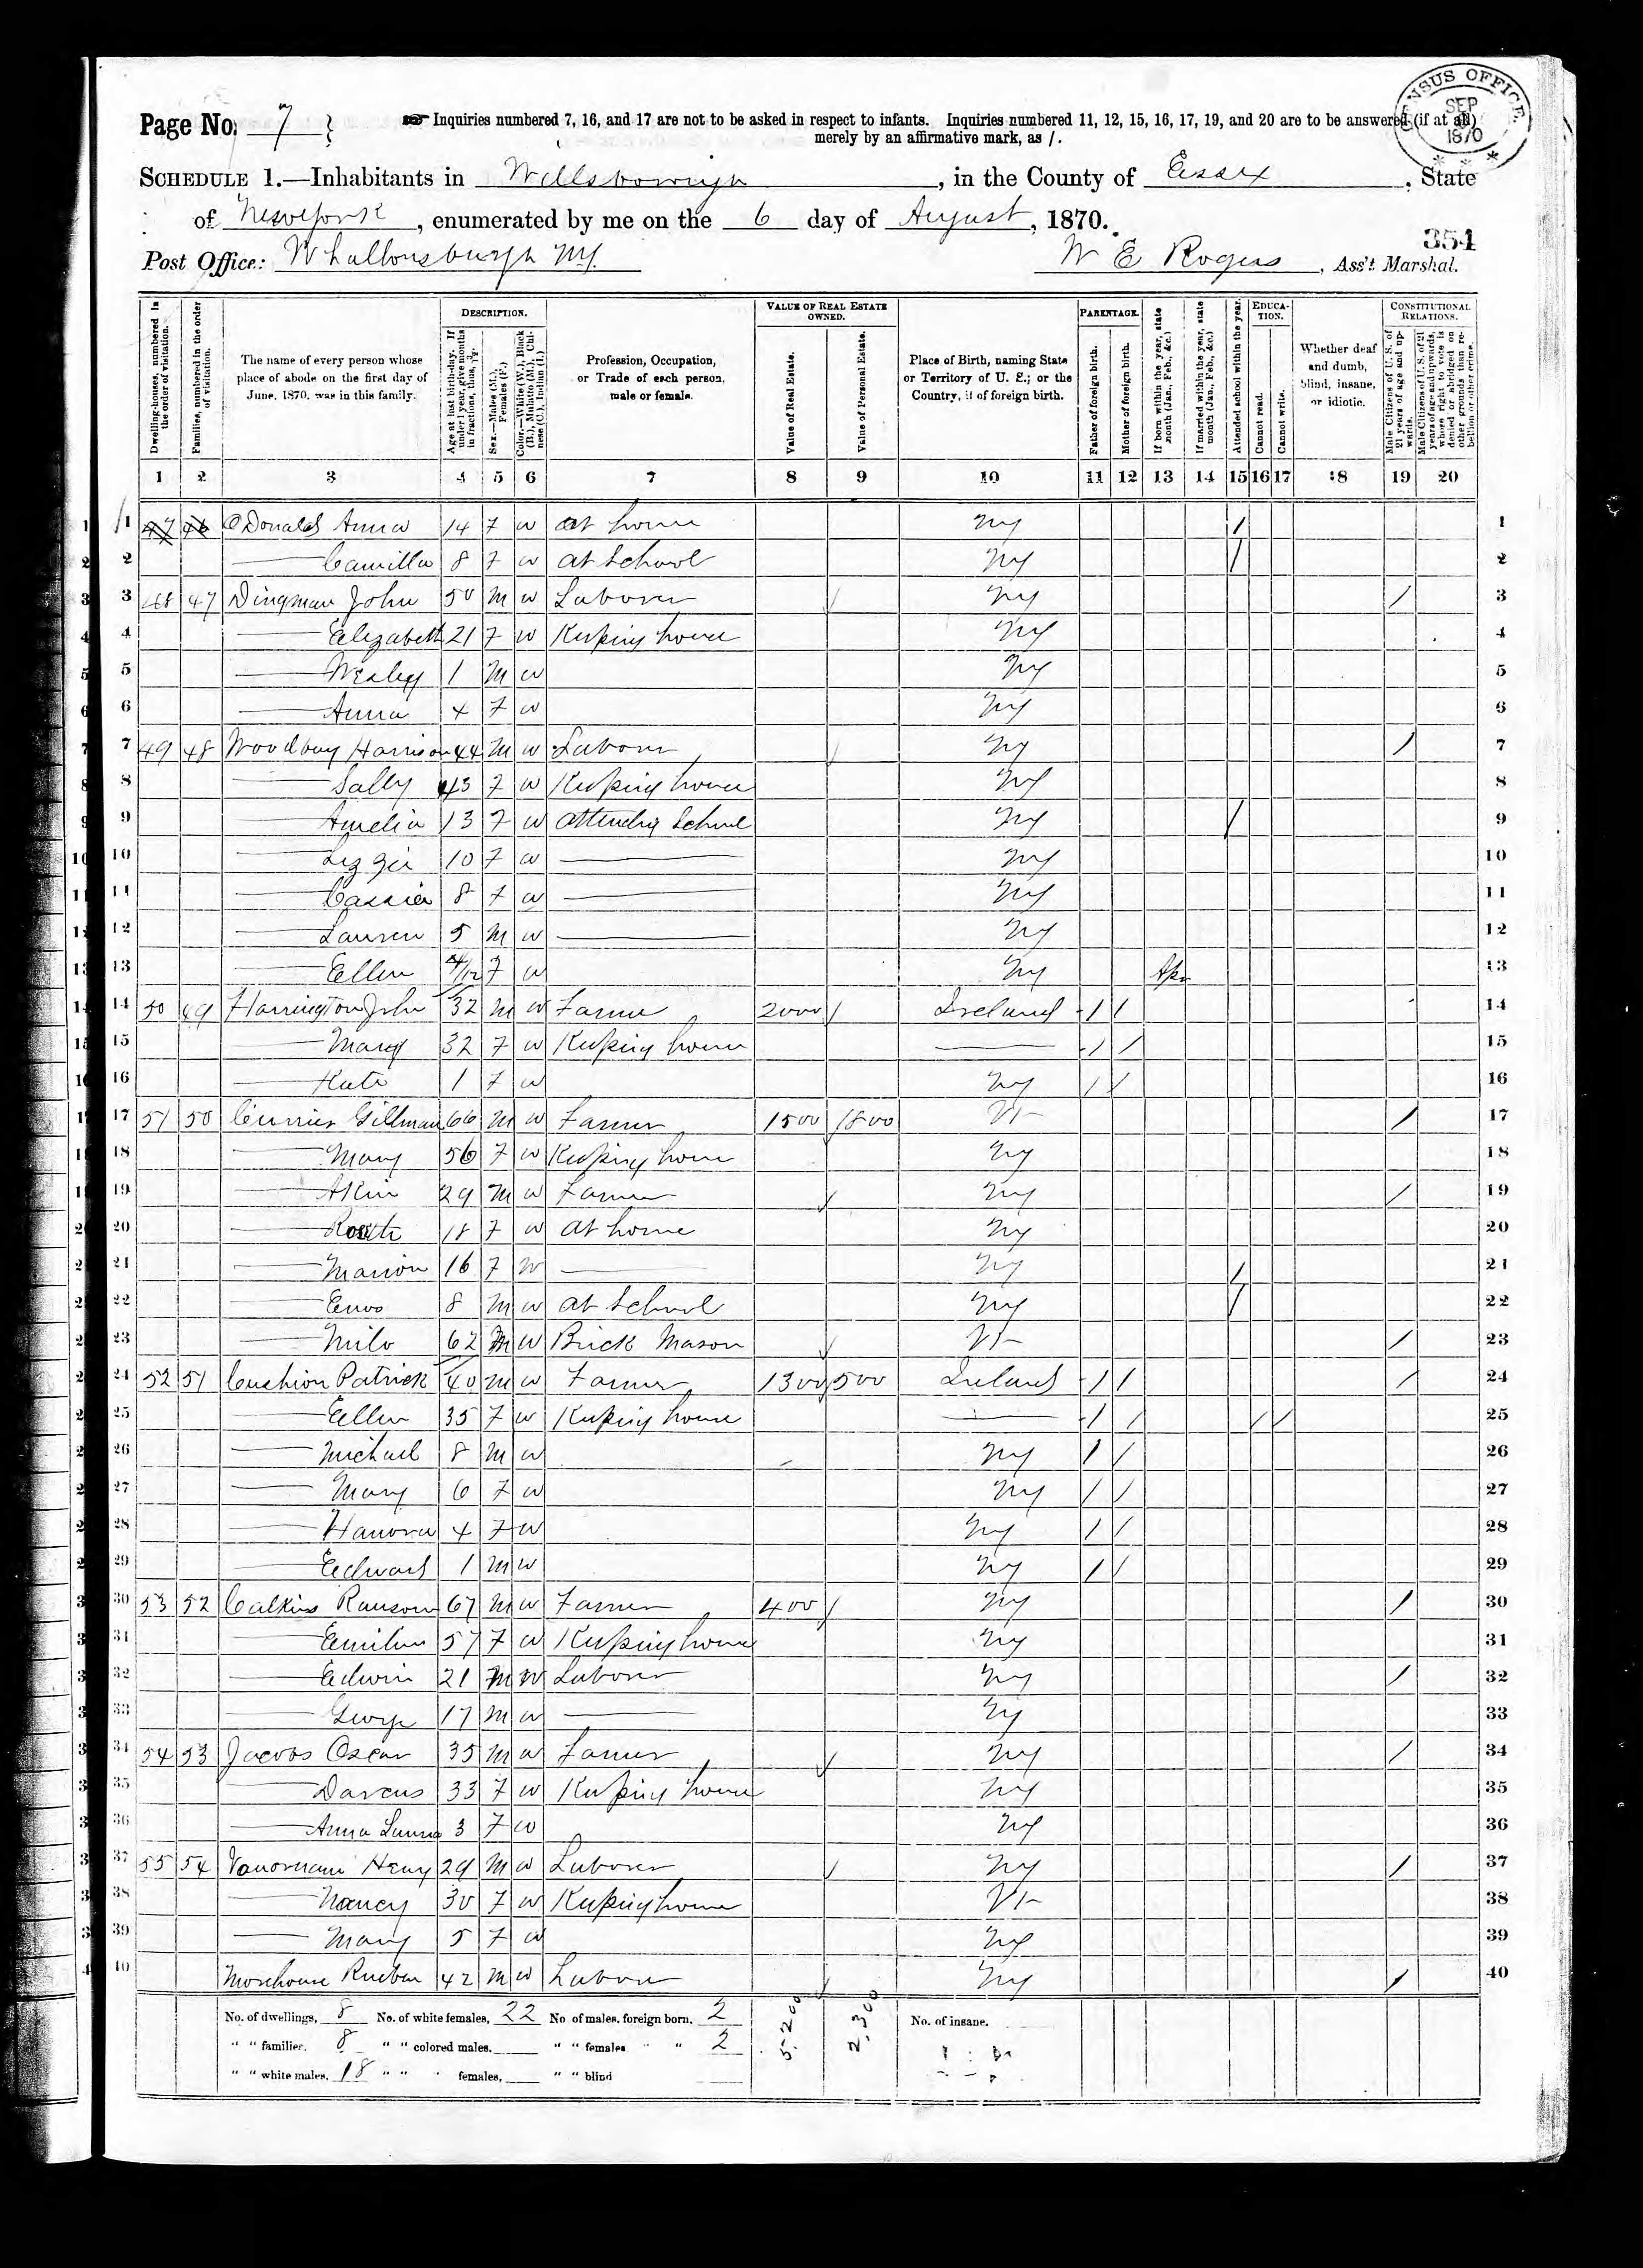 CENSUS OFFICE. SEP 1870
Page No. 7 } Inquiries numbered 7, 16, and 17 are not to be asked in respect to infants. Inquiries numbered 11, 12, 15, 16, 17, 19, and 20 are to be answered (if at all)
merely by an affirmative mark, as /.
SCHEDULE 1.—Inhabitants in Willsborough, in the County of Essex, State
of New York, enumerated by me on the 6 day of August, 1870.
354
Post Office: Whallonsburgh NY. W E Rogers, Ass't Marshal.
Dwelling-houses, numbered in the order of visitation.
Families, numbered in the order of visitation.
The name of every person whose place of abode on the first day of June, 1870, was in this family.
DESCRIPTION.
Age at last birth-day. If under 1 year, give months in fractions, thus, 3/12.
Sex.—Males (M.), Females (F.)
Color.—White (W.), Black (B.), Mulatto (M.), Chinese (C.), Indian (I.)
Profession, Occupation, or Trade of each person, male or female.
VALUE OF REAL ESTATE OWNED.
Value of Real Estate.
Value of Personal Estate.
Place of Birth, naming State or Territory of U. S.; or the Country, if of foreign birth.
PARENTAGE.
Father of foreign birth.
Mother of foreign birth.
If born within the year, state month (Jan., Feb., &c.)
If married within the year, state month (Jan., Feb., &c.)
Attended school within the year.
EDUCATION.
Cannot read.
Cannot write.
Whether deaf and dumb, blind, insane, or idiotic.
CONSTITUTIONAL RELATIONS.
Male Citizens of U. S. of 21 years of age and upwards.
Male Citizens of U. S. of 21 years of age and upwards, whose right to vote is denied or abridged on other grounds than rebellion or other crime.
1 2 3 4 5 6 7 8 9 10 11 12 13 14 15 16 17 18 19 20
1 47 46 O Donald Anna 14 F W At home NY / 1
2 — Camilla 8 F W At School NY / 2
3 48 47 Dingman John 50 M W Laborer NY / 3
4 — Elizabeth 21 F W Keeping house NY 4
5 — Wesley 1 M W NY 5
6 — Anna 4 F W NY 6
7 49 48 Woodbury Harrison 44 M W Laborer NY / 7
8 — Sally 43 F W Keeping house NY 8
9 — Amelia 13 F W Attending School NY / 9
10 — Lizzie 10 F W — NY 10
11 — Cassie 8 F W — NY 11
12 — Lauren 5 M W — NY 12
13 — Ellen 4/12 F W NY Apr 13
14 50 49 Harrington John 32 M W Farmer 2000 / Ireland / / 14
15 — Mary 32 F W Keeping house — / / 15
16 — Kate 1 F W NY / / 16
17 51 50 Currier Gillman 66 M W Farmer 1500 1800 Vt / 17
18 — Mary 56 F W Keeping house NY 18
19 — Akin 29 M W Farmer NY / 19
20 — 18 F W At home NY 20
21 — Marion 16 F W — NY / 21
22 — Enos 8 M W At School NY / 22
23 — Milo 62 M W Brick Mason Vt / 23
24 52 51 Cushion Patrick 40 M W Farmer 1300 500 Ireland / / / 24
25 — Ellen 35 F W Keeping house — / / / / 25
26 — Michael 8 M W NY / / 26
27 — Mary 6 F W NY / / 27
28 — Hanora 4 F W NY / / 28
29 — Edward 1 M W NY / / 29
30 53 52 Calkins Ransom 67 M W Farmer 400 / NY / 30
31 — 57 F W Keeping house NY 31
32 — Edwin 21 M W Laborer NY / 32
33 — George 17 M W — NY 33
34 54 53 Jacobs Oscar 35 M W Farmer NY / 34
35 — Darcus 33 F W Keeping house NY 35
36 — Anna Laura 3 F W NY 36
37 55 54 Vanornam Henry 29 M W Laborer NY / 37
38 — Nancy 30 F W Keeping house Vt 38
39 — Mary 5 F W NY 39
40 Morehouse Rueben 42 M W Laborer NY / 40
No. of dwellings, 8 No. of white females, 22 No of males, foreign born, 2 5200 2300 No. of insane.
" " families. 8 " " colored males, " " females " " 2
" " white males, 18 " " " females, " " blind